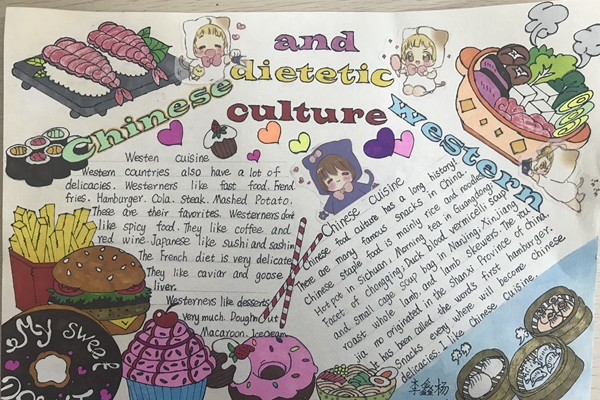 Chinese and western
dietetic
culture
Westen cuisine
Western countries also have a lot of
delicacies. Westerners like fast food. Frend
fries. Hamburger. Cola. Steak. Mashed Potato.
These are their favorites. Westerners don't
like spicy food. They like coffee and
red wine. Japanese like sushi and sashim
The French diet is very delicate
They like caviar and goose
liver.
Westerners like desserts
very much. Dough
Macaroon. Icecream
My sweet
Chinese cuisine
Chinese food culture has a long history!
There are many famous snacks in China.
Chinese staple food is mainly rice and noodles
Hot pot in Sichuan, Morning tea in Guangdong
facet of chongqing. Duck blood vermicelli soup
and small cage soup bag in Nanjing. Xinjiang
roast whole lamb and lamb skewers. The rou
jia mo originated in the Shanxi Province of China.
It has been called the world's first hamburger.
Snacks every where will become Chinese
delicacies. I like Chinese cuisine.
李鑫杨